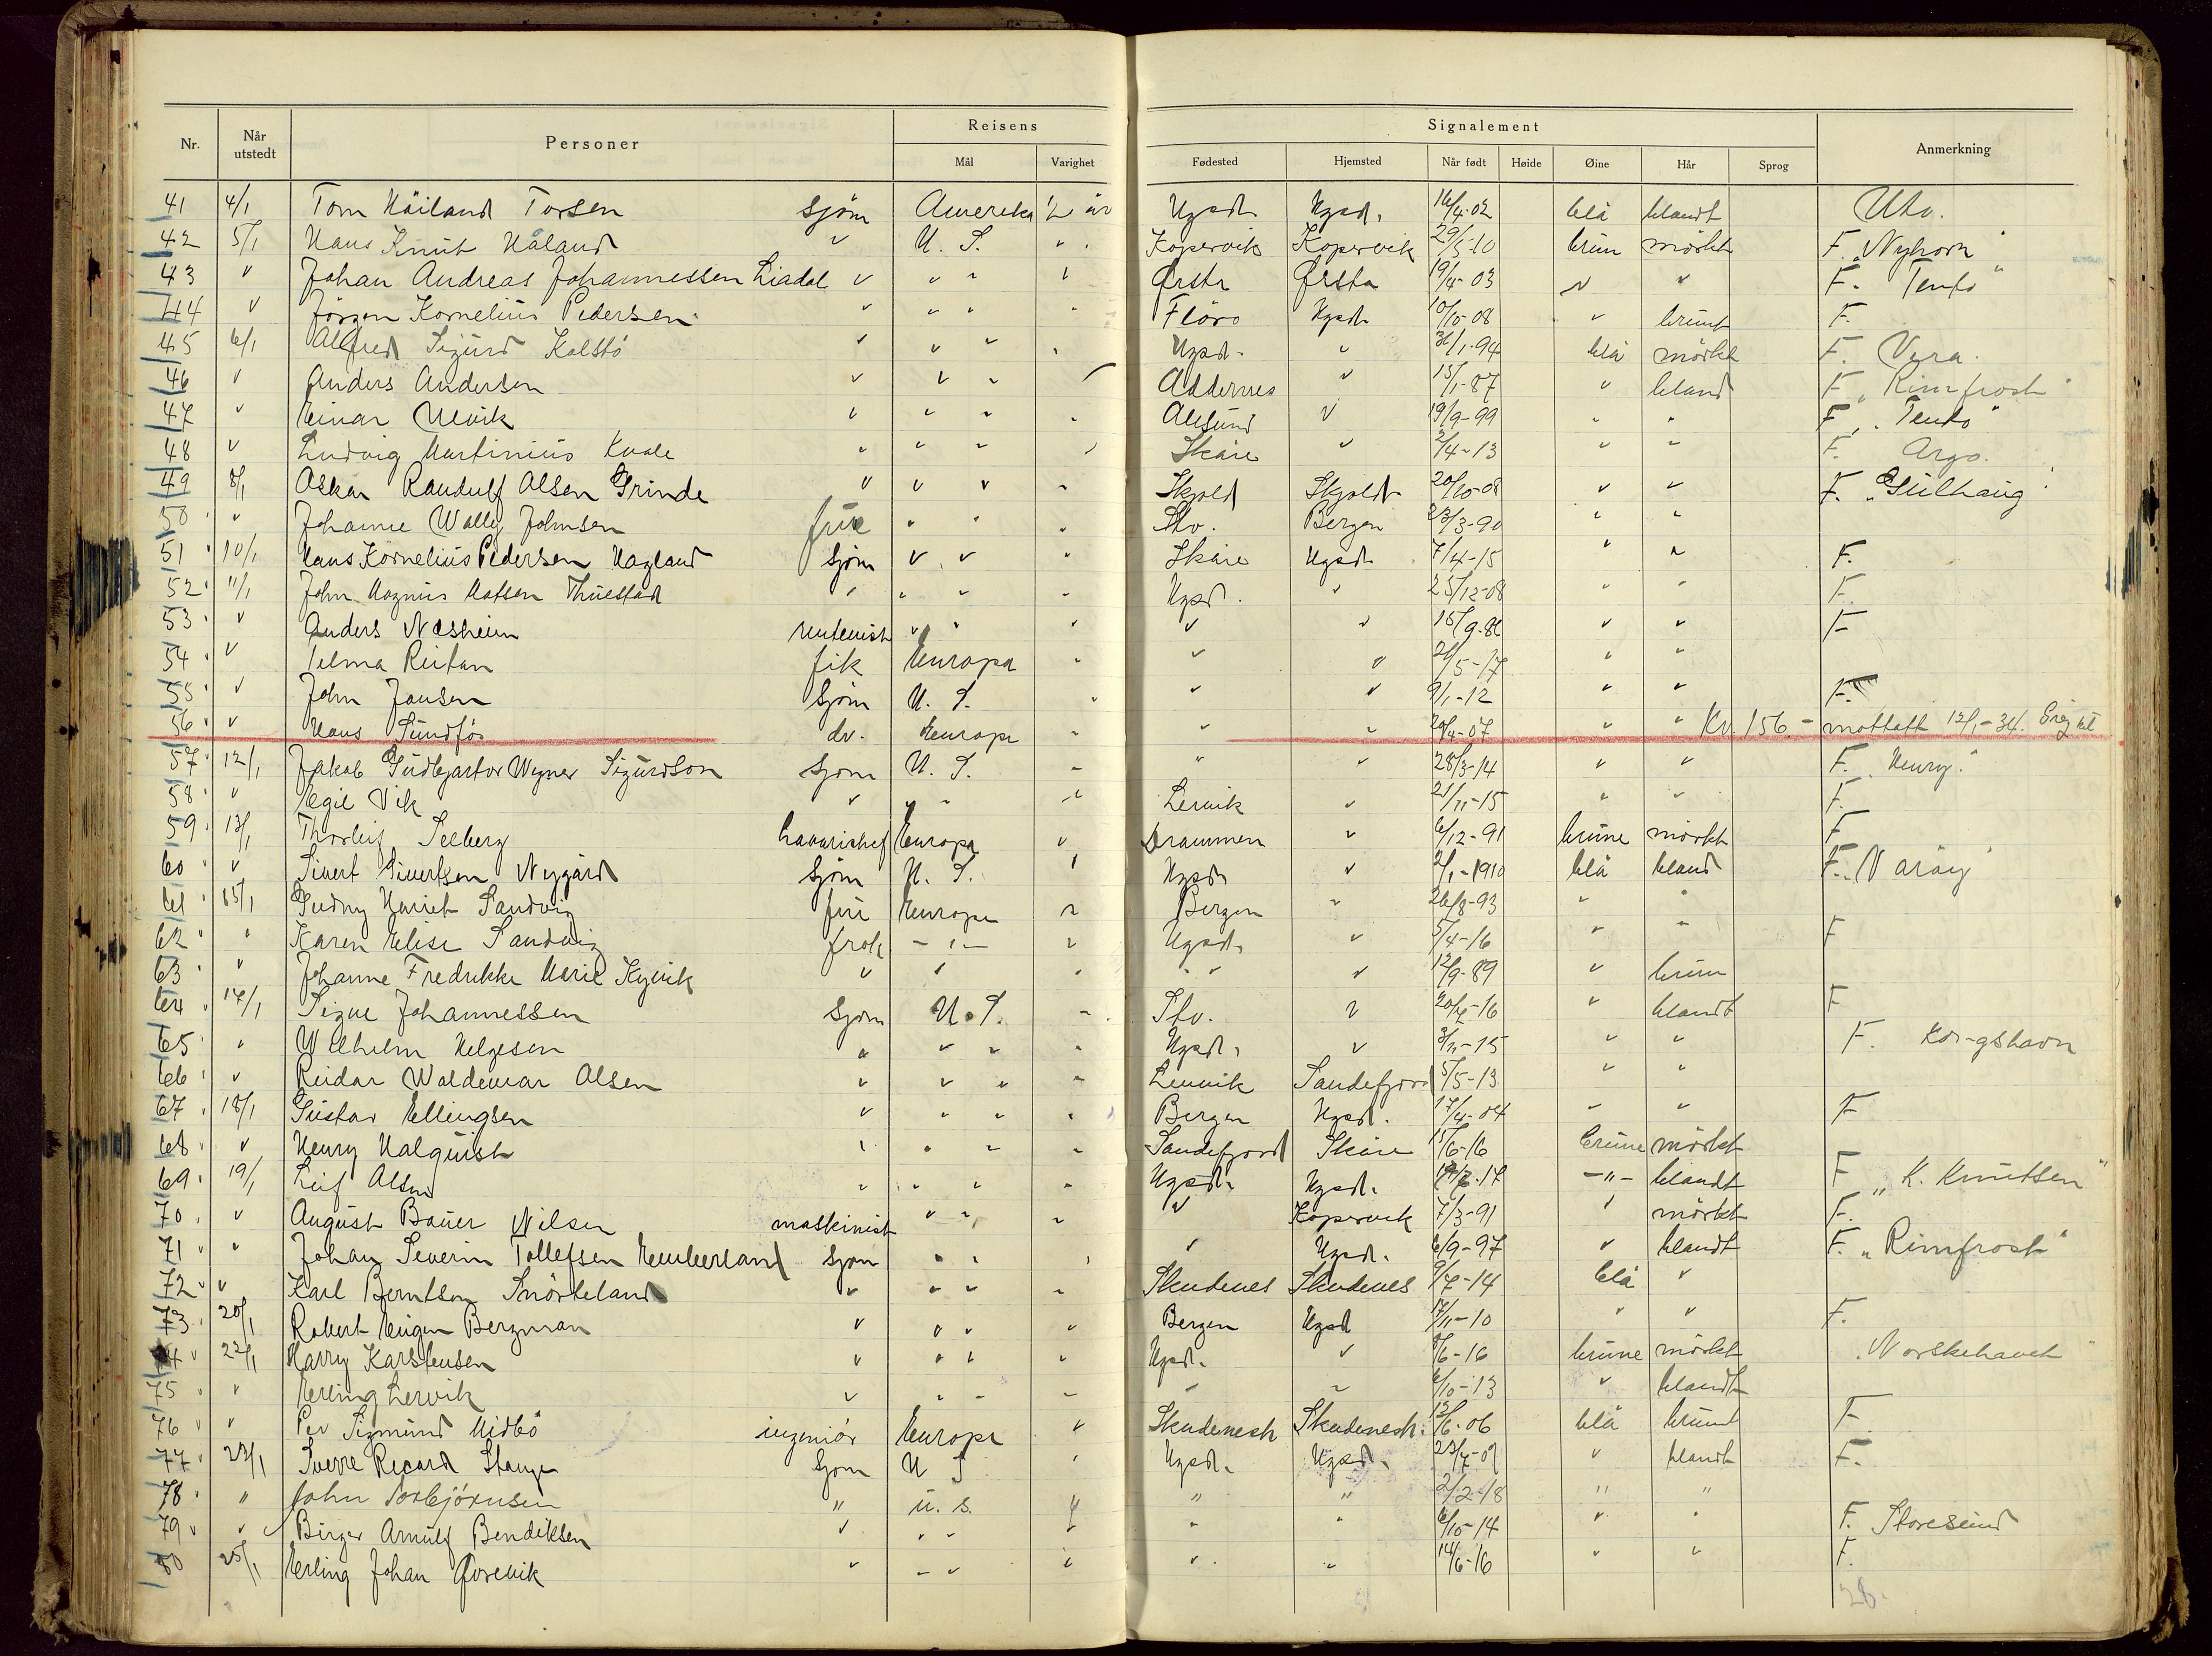 Reisens Signalement
Nr. Når utstedt Personer Mål Varighet Fødested Hjemsted Når født Høide Øine Hår Sprog Anmerkning
41 4/1 Tom Håiland Torsen sjøm Amerika ½ år Hgsd. Hgsd. 16/4-02 blå blandt Utv.
42 5/1 Hans Knut Håland " U. S. " Kopervik Kopervik 29/5-10 brun mörkt F. "Nyhorn"
43 " Johan Andreas Johannessen Liadal " " " " Ørsta Ørsta 19/4-03 " " F. "Tento"
44 " Jörgen Kornelius Pedersen " " " " Florö Hgsd. 10/10-08 " brunt F.
45 6/1 Alfred Sigurd Kolstö " " " " Hgsd. " 31/1-94 blå mörkt F. Vera.
46 " Anders Andersen " " " " Oddernes " 13/1-87 " bland F. "Rimfrost"
47 " Einar Ulvik " " " " Ålesund " 19/9-99 " " F. "Tento"
48 " Ludvig Martinius Kvale " " " " Skåre " 2/4-13 " " F. Argo.
49 8/1 Oskar Randulf Olsen Grinde " " " " Skjold Skjold 20/10-08 " " F. "Gulhaug"
50 " Johanne Wally Johnsen frue " " " Stv. Bergen 23/3-90 " "
51 10/1 Hans Kornelius Pedersen Hagland sjøm " " " Skåre Hgsd. 7/4-15 " " F.
52 11/1 John Magnus Matsen Thuestad " " " " Hgsd. " 25/12-08 " " F.
53 " Anders Næsheim " " " " " " " F
54 " Telma Reitan frk Europa " " " 21/5-17 " "
55 " John Jansen sjøm U. S. " " " 9/1-12 " " F.
56 " Hans Sundför dr. Europa " " " 20/4-07 " " Kr. 156.- mottatt 12/1-34.
57 12/1 Jakob Wyner Sigurdson sjøm U. S. " " " 28/3-14 " " F. "Henry"
58 " Egil Vik " " " " Lervik " 21/11-15 " " F.
59 13/1 Thorleif Selberg havarichef Europa " Drammen " 6/12-91 brune mörkt F
60 " Sivert Sivertsen Nygård sjøm U. S. " Hgsd. " 2/1-1910 blå bland F. "Varöy"
61 15/1 Gudny Hariet Sandvig fru Europa " Bergen " 26/8-93 " "
62 " Karen Elise Sandvig frök -"- " Hgsd. " 5/4-16 " " F
63 " Johanne Fredrikke Marie Kyvik " " " " " 12/9-89 " brun
64 14/1 Signe Johannessen sjøm U. S. " Stv. " 20/7-16 " blandt F
65 " Wilhelm Helgesen " " " " Hgsd. " 3/11-15 " " F. Kongshavn
66 " Reidar Waldemar Olsen " " " " Lenvik Sandefjord 5/5-13 " "
67 18/1 Gustav Ellingsen " " " " Bergen Hgsd. 17/4-04 " " F
68 " Henry Halquist " " " " Sandefjord Skåre 15/6-16 brune mörkt
69 19/1 Leif Olsen " " " " Hgsd. Hgsd. -"- blandt F "K. Knutsen"
70 " August Bauer Nilsen maskinist " " " " Kopervik 7/3-91 " mörkt F.
71 " Johan Severin Tollefsen Emberland sjøm " " " " Hgsd. 6/9-97 " blandt F. "Rimfrost"
72 " Karl Berntsen Snörteland " " " " Skudenes Skudenes 9/7-14 blå "
73 20/1 Robert Eugen Bergman " " " " Bergen Hgsd 17/11-10 " " F.
74 22/1 Harry Karstensen " " " " Hgsd. " 8/6-16 brune mörkt "Norskehavet"
75 " Erling Lervik " " " " " " 6/10-13 " blandt
76 " Per Sigmund Midbö ingeniör Europa " Skudenesh Skudenesh. 12/6-06 blå brunt F.
77 23/1 Sverre Recard Stange sjøm U S " Hgsd. Hgsd. 23/7-09 " blandt F.
78 " John Torbjörnsen " u. s. " " " 2/2-18 " "
79 " Birger Arnulf Bendiksen " " " " " " 6/10-14 " " F. Storesund
80 25/1 Erling Johan Qvrevik " " " " " " 14/6-16 " " F.
28.